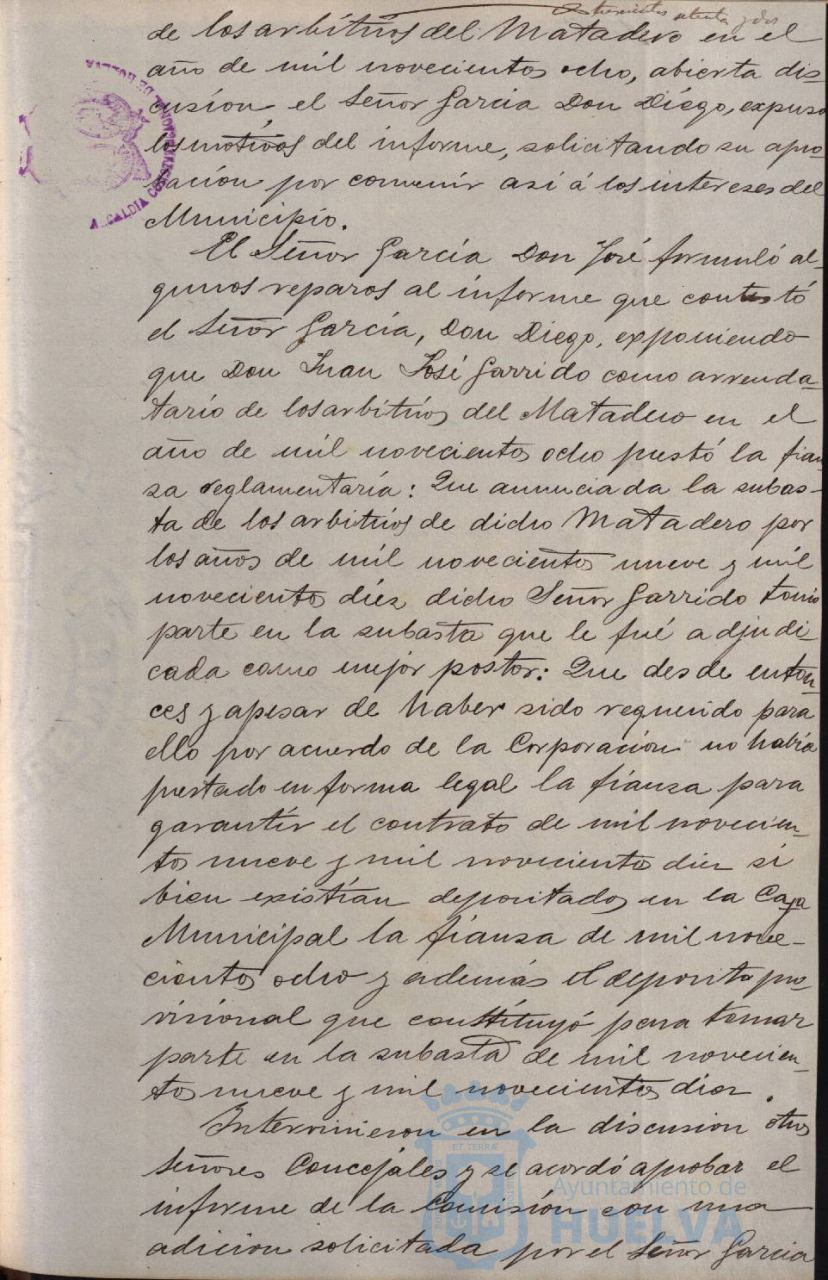 trescientos setenta y dos
de los arbitrios del Matadero en el
año de mil novecientos ocho, abierta dis-
cusión el Señor Garcia Don Diego, expuso
los motivos del informe, solicitando su apro-
vación por convenir asi á los intereses del
Municipio.
El Señor Garcia Don José formuló al-
gunos reparos al informe que contestó
el Señor Garcia, Don Diego, exponiendo
que Don Juan José Garrido como arrenda-
tario de los arbitrios del Matadero en el
año de mil novecientos ocho prestó la fian-
sa reglamentaria: Que anunciada la subas-
ta de los arbitrios de dicho Matadero por
los años de mil novecientos nueve y mil
novecientos diez dicho Señor Garrido tomó
parte en la subasta que le fué adjudi-
cada como mejor postor: Que desde enton-
ces y apesar de haber sido requerido para
ello por acuerdo de la Corporación no había
prestado en forma legal la fianza para
garantir el contrato de mil novecien-
tos nueve y mil novecientos diez si
bien existían depositados en la Caja
Municipal la fianza de mil nove-
cientos ocho y además el deposito pro-
visional que constituyó para tomar
parte en la subasta de mil novecien-
tos nueve y mil novecientos diez.
Intervinieron en la discusion otros
Señores Concejales y se acordó aprobar el
informe de la Comisión con una
adicion solicitada por el Señor Garcia
ALCALDIA CONSTITUCIONAL DE HUELVA
Ayuntamiento de
HUELVA